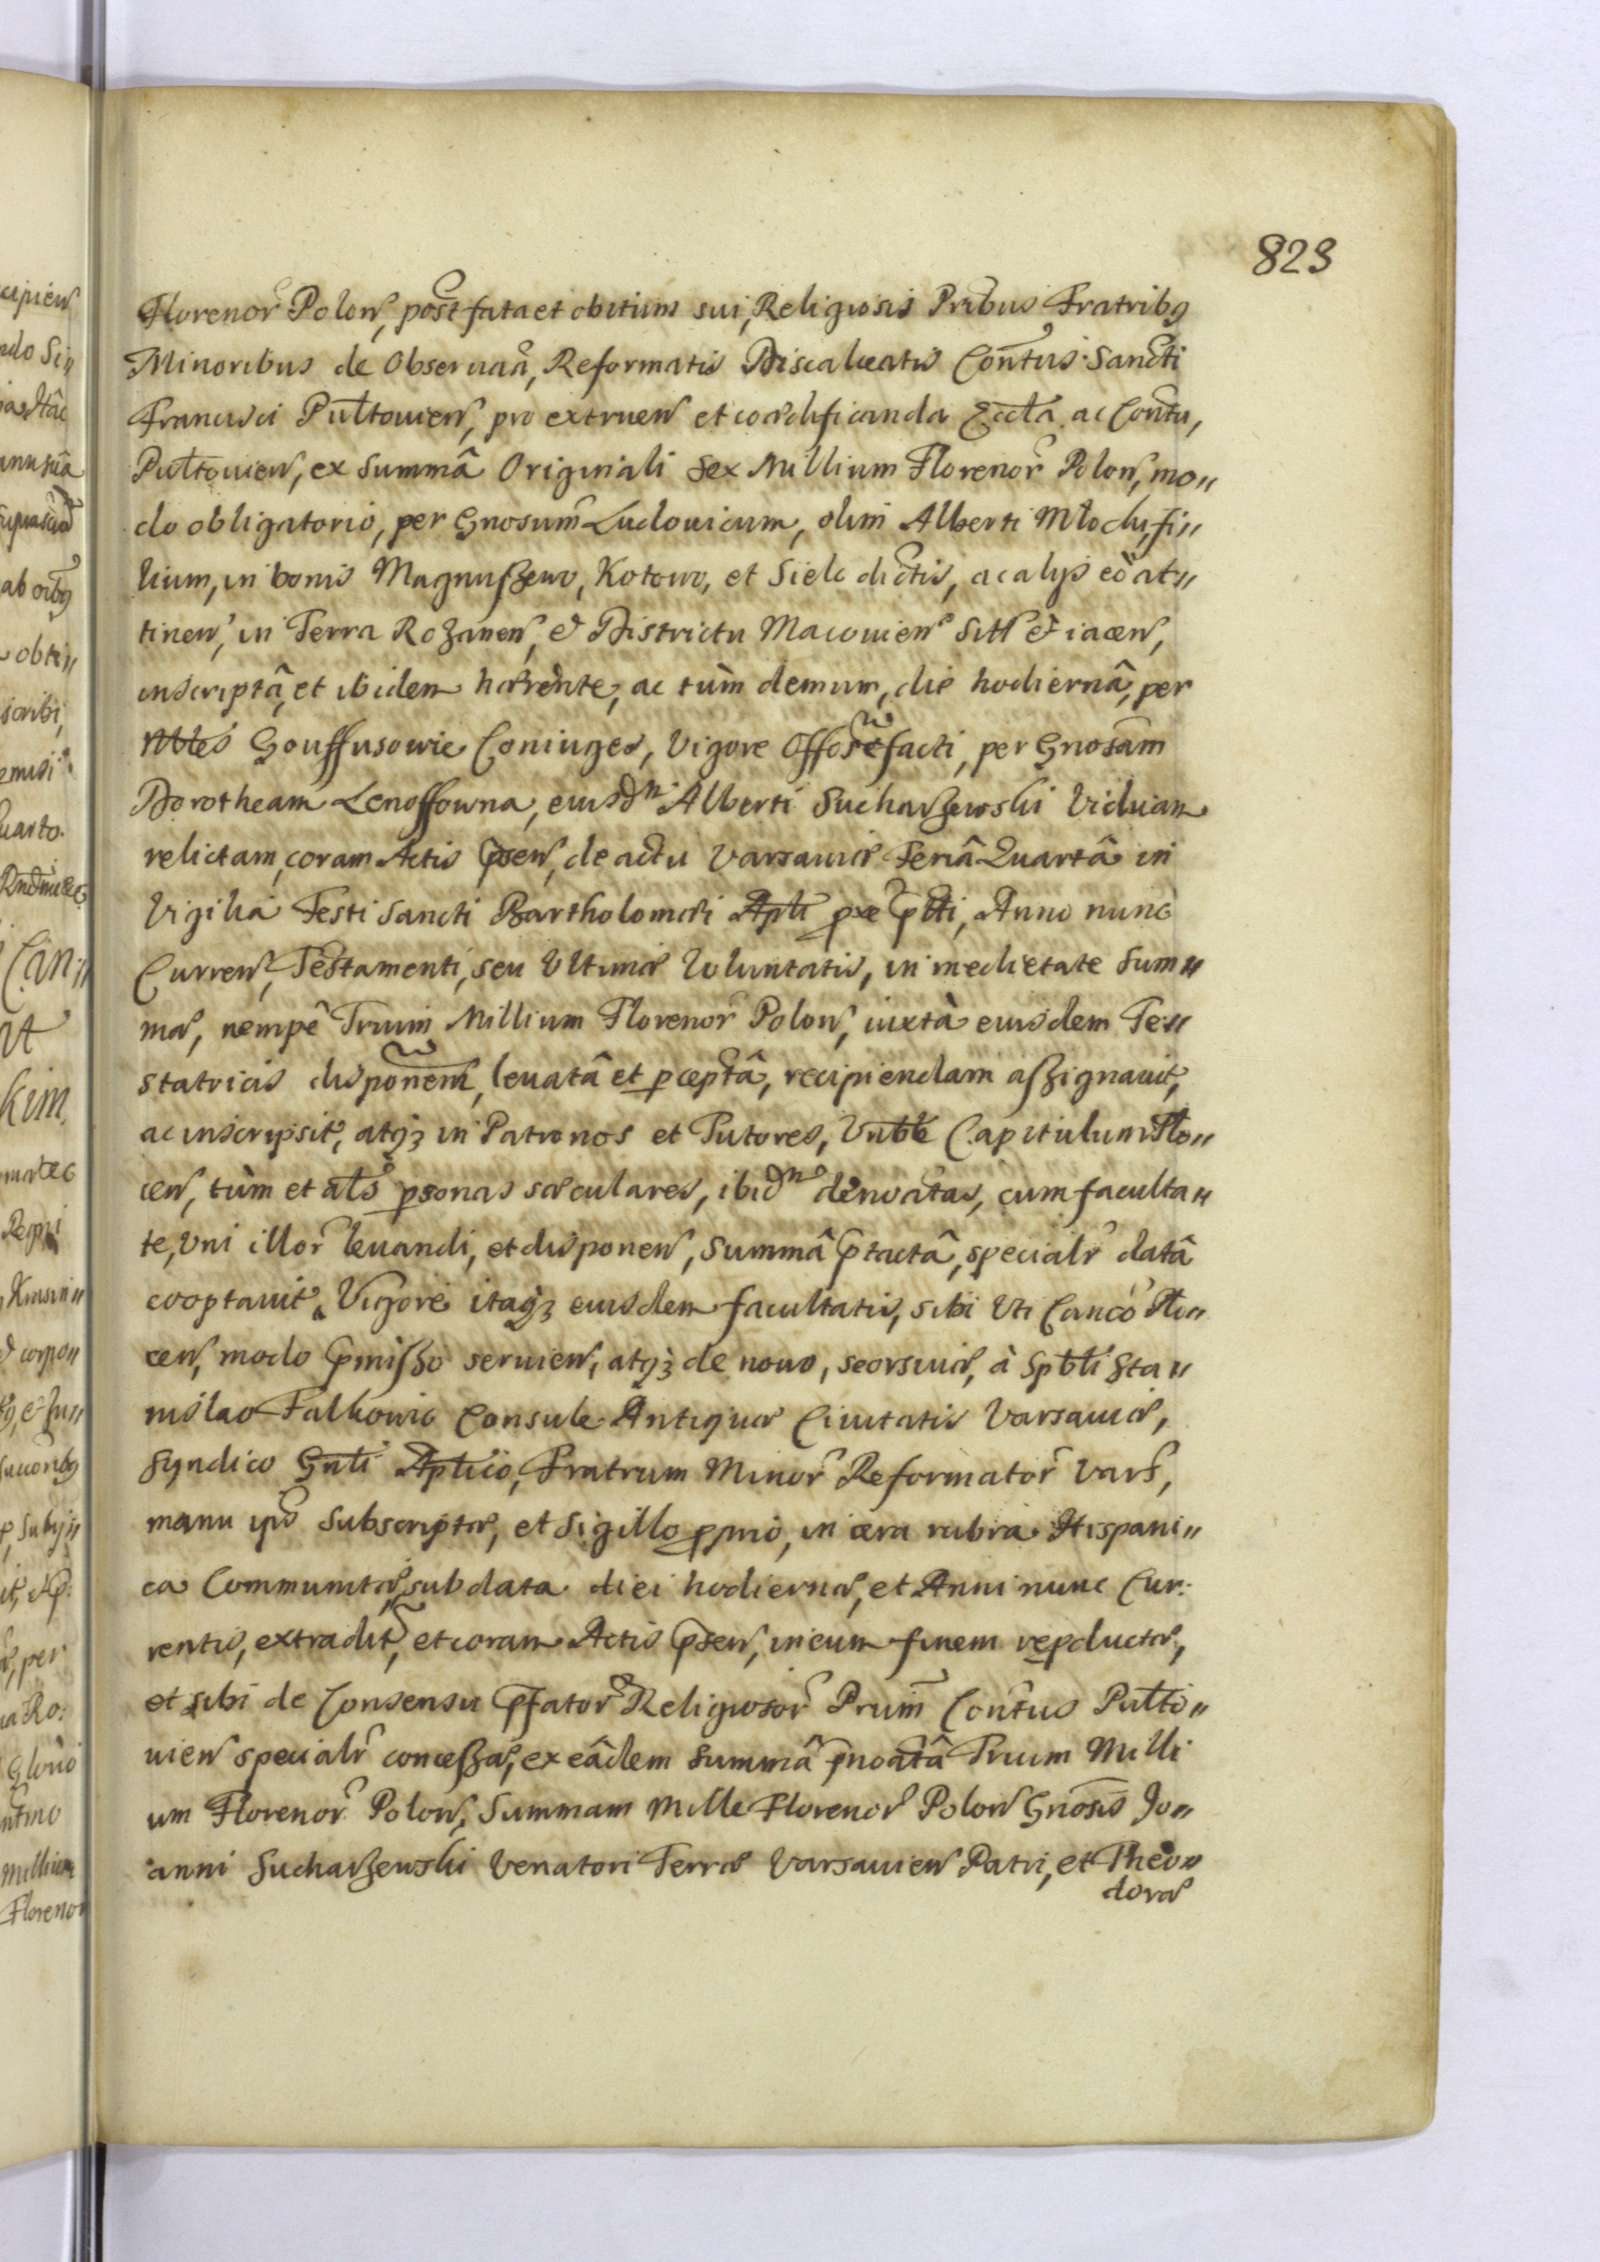 823
Florenor Polon, post fata et obitum sui, Religiosis Pribus Fratribq
Minoribus de Obseruan, Reformatis Discalceatis Contus Sancti
Francisci Pultouien, pro extruen et coædificanda Eccla ac Contu,
Pultouien, ex Summâ Originali Sex Millium Florenor Polon, mo„
do obligatorio, per Gnosum Ludouicum, olim Alberti Młocki, fi„
lium, in bonis Magnuszewo, Kotowo, et Sielc dictis, ac alijs eo at„
tinen, in Terra Rozanen, & Districtu Macouien Sitt & iacen,
inscriptâ, et ibidem hærente, ac tùm demum, die hodiernâ, per
Mbles Gouffusowie Coniuges, Vigore Officore facti, per Gnosam
Dorotheam Lenoffowna, eiusdm Alberti Sucharzewski Viduam
relictam, coram Actis psen, de actu Varsauiæ Feriâ Quartâ in
Vigilia Festi Sancti Bartholomæi Apli pxe ptti, Anno nunc
Curren, Testamenti, seu Vltimæ Voluntatis, in medietate Sum„
mæ, nempè Trium Millium Florenor Polon, iuxtà eiusdem Te„
statricis disponem, leuatâ et pceptâ, recipiendam aszignauit,
ac inscripsit, atq3 in Patronos et Tutores, Vnbble Capitulum Plo„
cen, tùm et als psonas sæculares, ibidm denoatas, cum faculta„
te, Vni illor leuandi, et disponen, Summâ ptactâ, specialr datâ
cooptauit. Vigore itaq3 eiusdem facultatis, sibi Vti Canco Plo„
cen, modo pmiszo seruien, atq3 de nouo, seorsiuæ, à Spbli Sta„
nislao Falkowic Consule Antiquæ Ciuitatis Varsauiæ,
Syndico Gnli Aplico, Fratrum Minor Reformator Vars,
manu ips Subscriptæ, et Sigillo pprio, in cera rubra Hispani„
ca Communitæ, sub data diei hodiernæ, et Anni nunc Cur:
rentis, extradit, et coram Actis psen, in eum finem repductæ,
et sibi de Consensu pfator Religiosor Prum Contus Pulto„
uien specialr conceszæ, ex eâdem Summâ pnoatâ Trium Milli
um Florenor Polon, Summam Mille Florenor Polon Gnosis Jo„
anni Sucharzewski Venatori Terræ Varsauien Patri, et Theo„
doræ